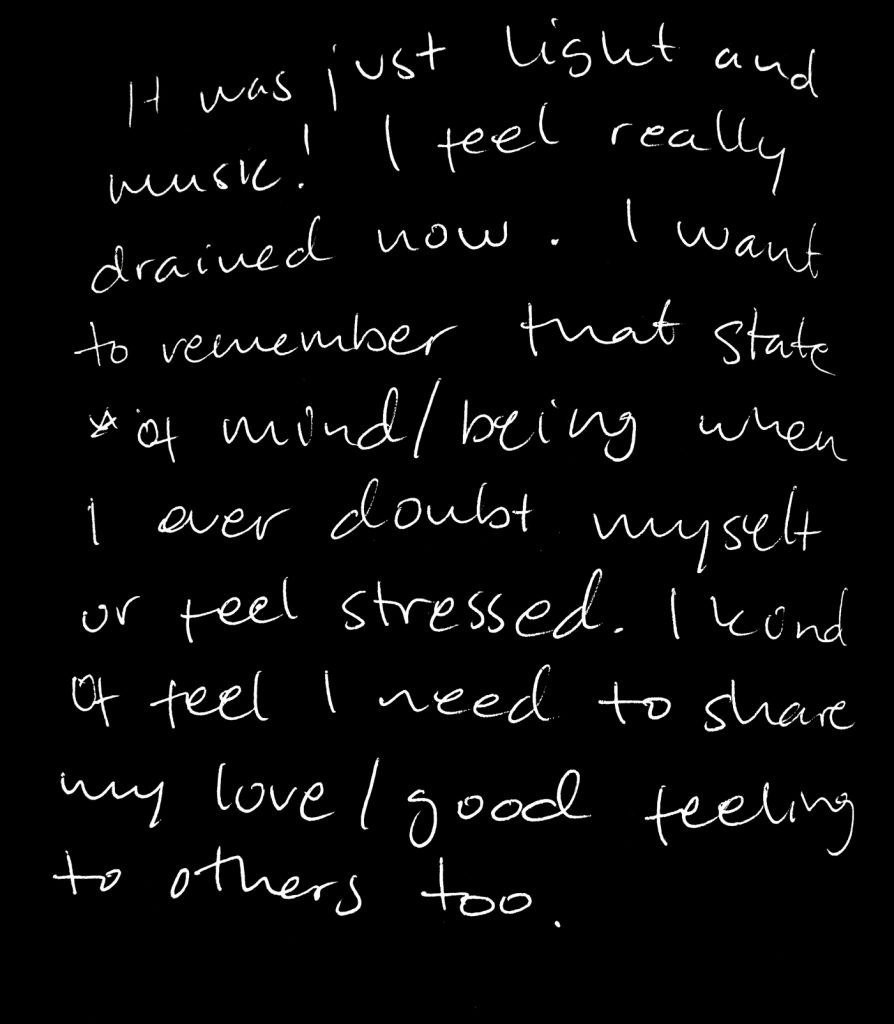 It was just light and
music! I feel really
drained now. I want
to remember that state
of mind/being when
I ever doubt myself
or feel stressed. I kind
of feel I need to share
my love/good feeling
to others too.